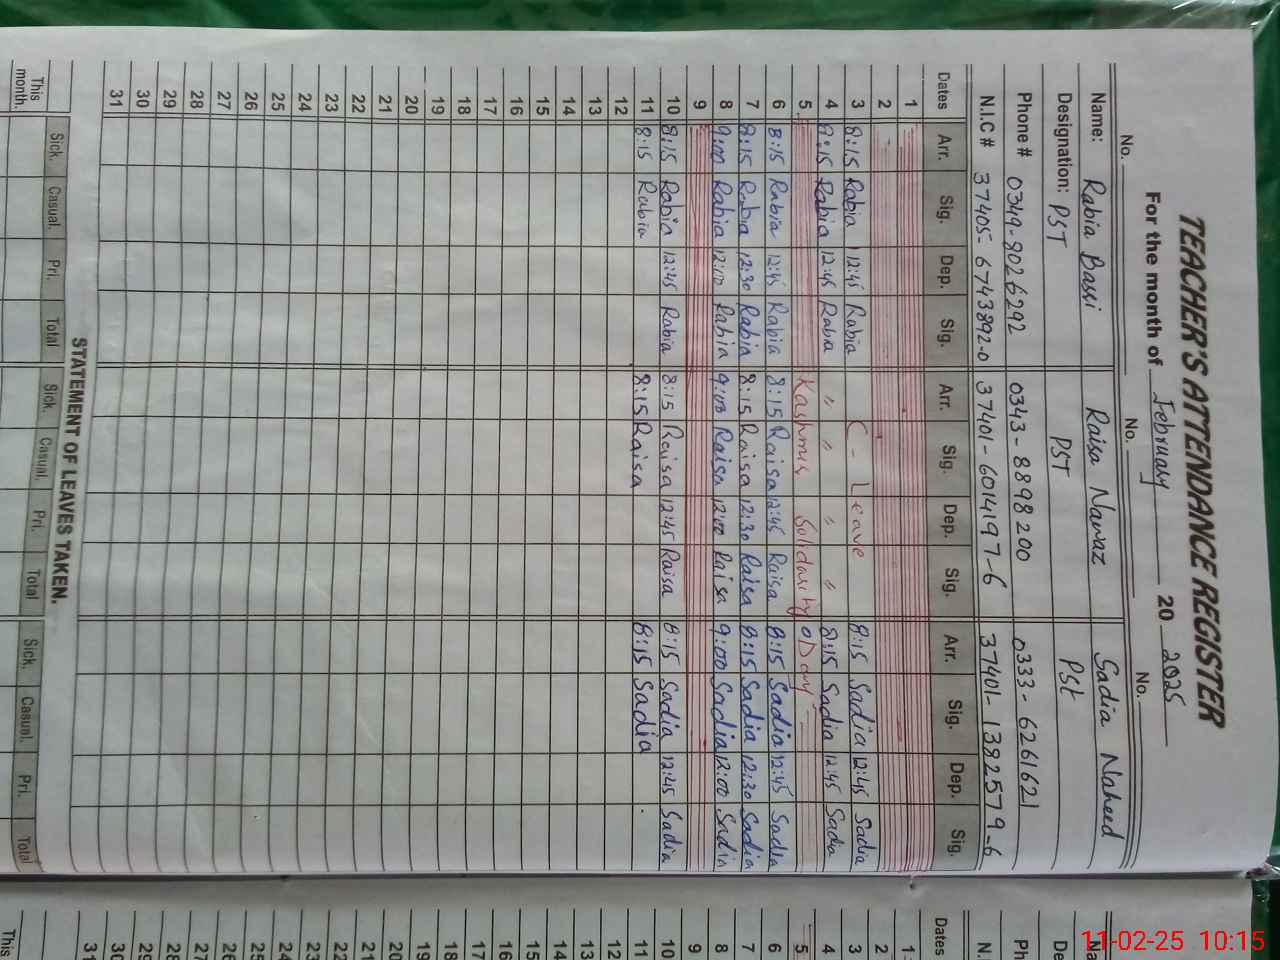 TEACHER'S ATTENDANCE REGISTER
For the month of February 20 2025
No. No. No.
Name: Rabia Bassi Raisa Nawaz Sadia Naheed
Designation: PST PST PSt
Phone # 0349-8026292 0343-8898200 0333-6261621
N.I.C # 37405-6743892-0 37401-6014197-6 37401-1382579-6
Dates Arr. Sig. Dep. Sig. Arr. Sig. Dep. Sig. Arr. Sig. Dep. Sig.
1
2
3 8:15 Rabia 12:45 Rabia C - Leave 8:15 Sadia 12:45 Sadia
4 8:15 Rabia 12:45 Rabia " " " " 8:15 Sadia 12:45 Sadia
5 Kashmir Solidarity Day
6 8:15 Rabia 12:45 Rabia 8:15 Raisa 12:45 Raisa 8:15 Sadia 12:45 Sadia
7 8:15 Rabia 12:30 Rabia 8:15 Raisa 12:30 Raisa 8:15 Sadia 12:30 Sadia
8 9:00 Rabia 12:00 Rabia 9:00 Raisa 12:00 Raisa 9:00 Sadia 12:00 Sadia
9
10 8:15 Rabia 12:45 Rabia 8:15 Raisa 12:45 Raisa 8:15 Sadia 12:45 Sadia
11 8:15 Rabia 8:15 Raisa 8:15 Sadia
12
13
14
15
16
17
18
19
20
21
22
23
24
25
26
27
28
29
30
31
STATEMENT OF LEAVES TAKEN.
Sick. Casual. Pri. Total Sick. Casual. Pri. Total Sick. Casual. Pri. Total
This month.
Na
De
Ph
N.
Dates
1
2
3
4
5
6
7
8
9
10
11
12
13
14
15
16
17
18
19
20
21
22
23
24
25
26
27
28
29
30
31
This
11-02-25 10:15